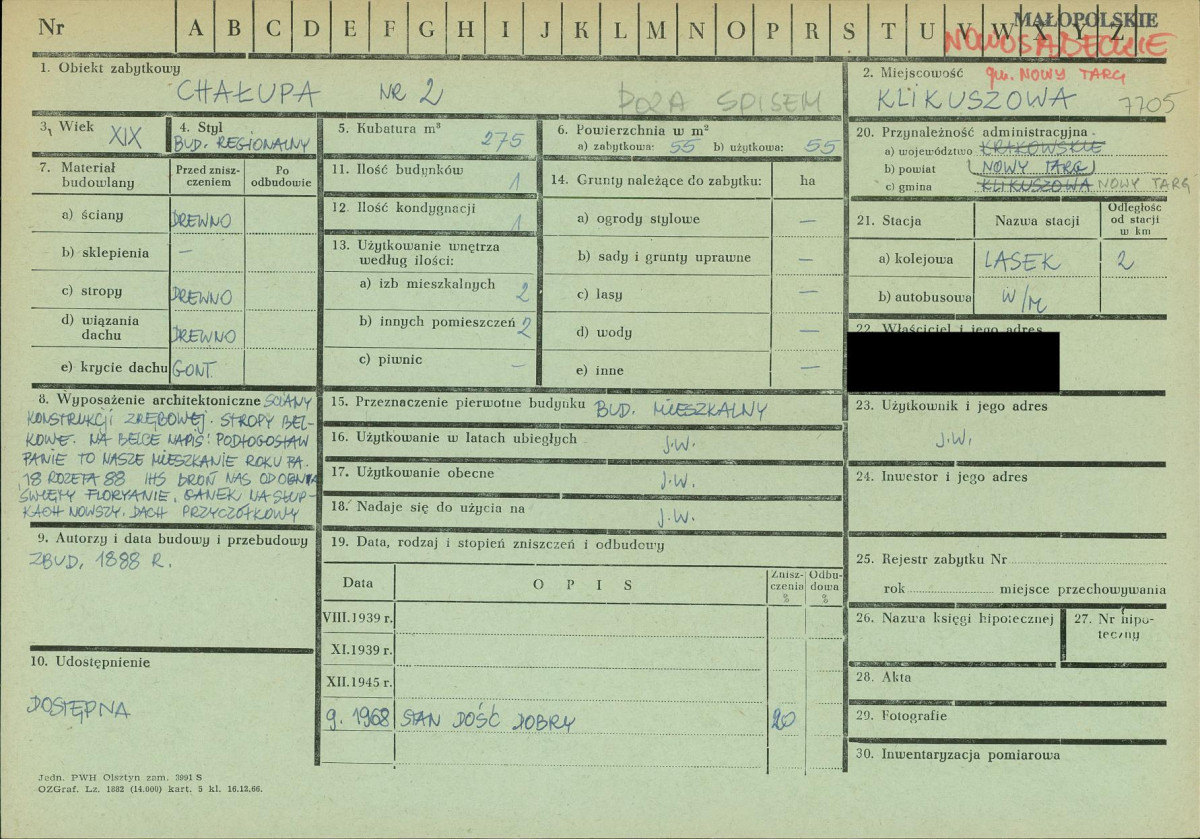 Nr A B C D E F G H I J K L M N O P R S T U V W X Y Z
MAŁOPOLSKIE
NOWOSĄDECKIE
1. Obiekt zabytkowy
CHAŁUPA NR 2
POZA SPISEM
2. Miejscowość gm. NOWY TARG
KLIKUSZOWA 7705
3. Wiek XIX
4. Styl
BUD. REGIONALNY
5. Kubatura m³ 275
6. Powierzchnia w m²
a) zabytkowa: 55 b) użytkowa: 55
7. Materiał budowlany
Przed zniszczeniem
Po odbudowie
a) ściany DREWNO
b) sklepienia —
c) stropy DREWNO
d) wiązania dachu DREWNO
e) krycie dachu GONT.
11. Ilość budynków 1
12. Ilość kondygnacji 1
13. Użytkowanie wnętrza według ilości:
a) izb mieszkalnych 2
b) innych pomieszczeń 2
c) piwnic —
14. Grunty należące do zabytku: ha
a) ogrody stylowe —
b) sady i grunty uprawne —
c) lasy —
d) wody —
e) inne —
20. Przynależność administracyjna
a) województwo KRAKOWSKIE
b) powiat NOWY TARG
c) gmina KLIKUSZOWA NOWY TARG
21. Stacja Nazwa stacji Odległość od stacji w km
a) kolejowa LASEK 2
b) autobusowa W/M
22. Właściciel i jego adres
8. Wyposażenie architektoniczne ŚCIANY
KONSTRUKCJI ZRĘBOWEJ. STROPY BEL-
KOWE. NA BELCE NAPIS: POBŁOGOSŁAW
PANIE TO NASZE MIESZKANIE ROKU PA.
18 ROZETA 88 IHS BROŃ NAS OD OGNIA
ŚWIĘTY FLORYANIE. GANEK NA SŁUP-
KACH NOWSZY. DACH PRZYCZÓŁKOWY
15. Przeznaczenie pierwotne budynku BUD. MIESZKALNY
16. Użytkowanie w latach ubiegłych J.W.
17. Użytkowanie obecne J.W.
18. Nadaje się do użycia na J.W.
23. Użytkownik i jego adres
J.W.
24. Inwestor i jego adres
9. Autorzy i data budowy i przebudowy
ZBUD. 1888 R.
10. Udostępnienie
DOSTĘPNA
19. Data, rodzaj i stopień zniszczeń i odbudowy
Data OPIS Zniszczenia % Odbudowa %
VIII.1939 r.
XI.1939 r.
XII.1945 r.
9. 1968 STAN DOŚĆ DOBRY 20
25. Rejestr zabytku Nr
rok miejsce przechowywania
26. Nazwa księgi hipotecznej
27. Nr hipoteczny
28. Akta
29. Fotografie
30. Inwentaryzacja pomiarowa
Jedn. PWH Olsztyn zam. 3991 S
OZGraf. Lz. 1882 (14.000) kart. 5 kl. 16.12.66.